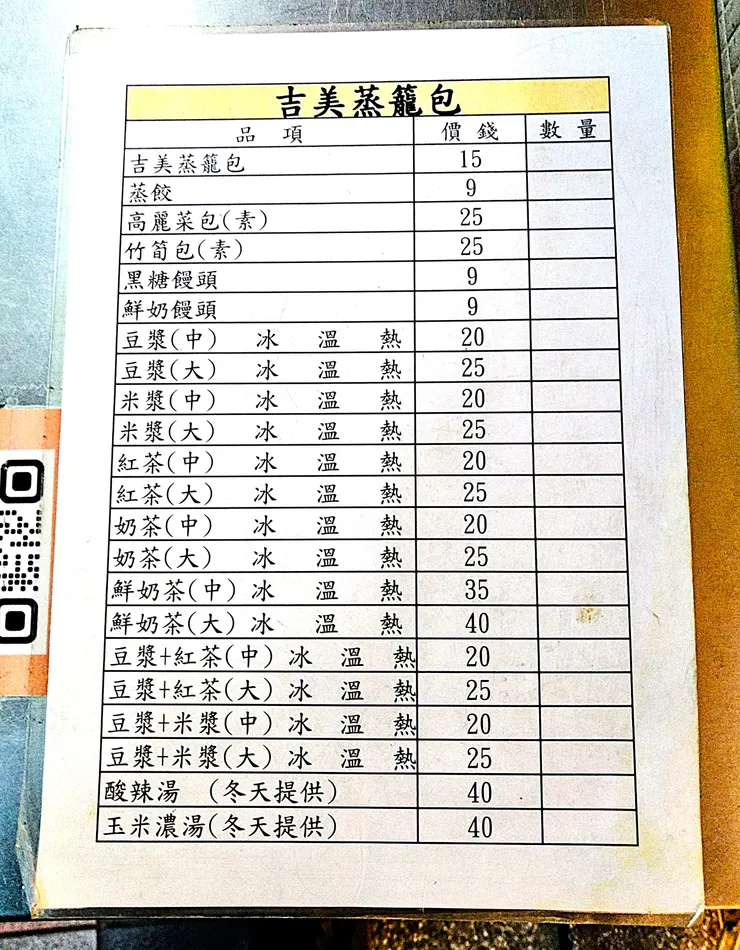 吉美蒸籠包
品項 價錢 數量
吉美蒸籠包 15
蒸餃 9
高麗菜包(素) 25
竹筍包(素) 25
黑糖饅頭 9
鮮奶饅頭 9
豆漿(中) 冰 溫 熱 20
豆漿(大) 冰 溫 熱 25
米漿(中) 冰 溫 熱 20
米漿(大) 冰 溫 熱 25
紅茶(中) 冰 溫 熱 20
紅茶(大) 冰 溫 熱 25
奶茶(中) 冰 溫 熱 20
奶茶(大) 冰 溫 熱 25
鮮奶茶(中) 冰 溫 熱 35
鮮奶茶(大) 冰 溫 熱 40
豆漿+紅茶(中) 冰 溫 熱 20
豆漿+紅茶(大) 冰 溫 熱 25
豆漿+米漿(中) 冰 溫 熱 20
豆漿+米漿(大) 冰 溫 熱 25
酸辣湯 (冬天提供) 40
玉米濃湯(冬天提供) 40